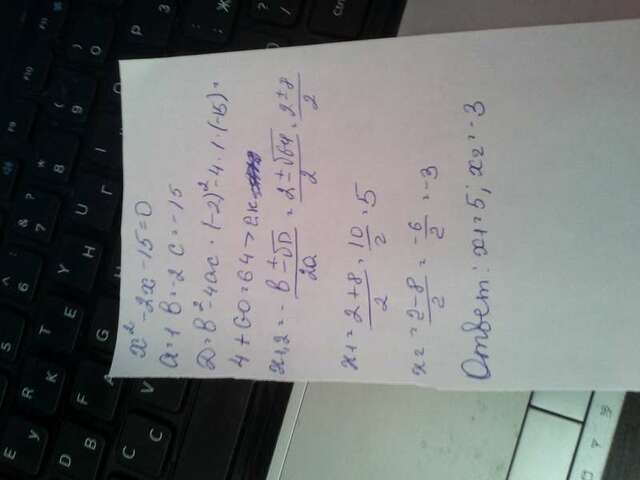 x² - 2x - 15 = 0
a = 1 в = -2 c = -15
D = в² - 4ac = (-2)² - 4 · 1 · (-15) =
4 + 60 = 64 > 2к
x1,2 = -в ± √D / 2a = 2 ± √64 / 2 = 2 ± 8 / 2
x1 = 2 + 8 / 2 = 10 / 2 = 5
x2 = 2 - 8 / 2 = -6 / 2 = -3
Ответ: x1 = 5; x2 = -3